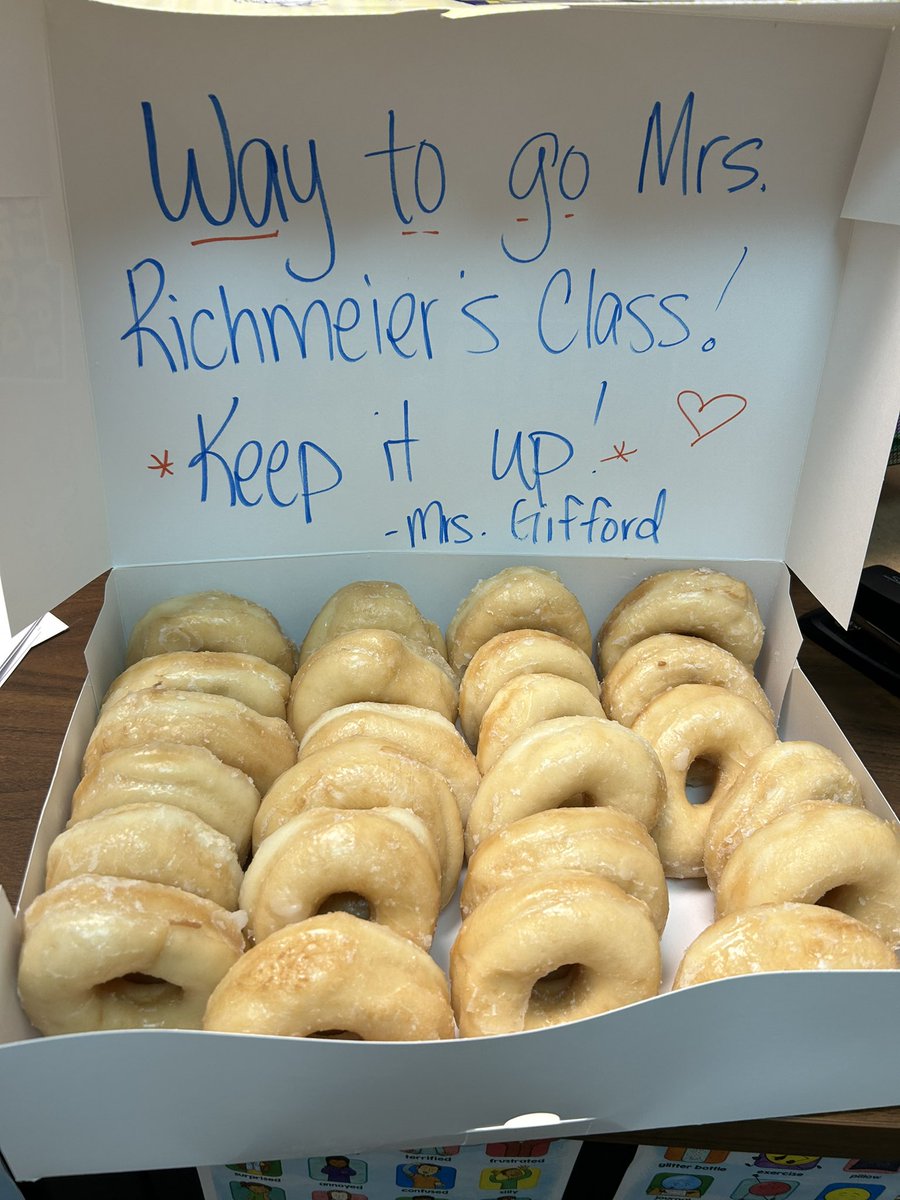 Way to go Mrs.
Richmeier's Class!
*Keep it up!*
-Mrs. Gifford
terrified frustrated glitter bottle exercise pillow
surprised annoyed confused silly